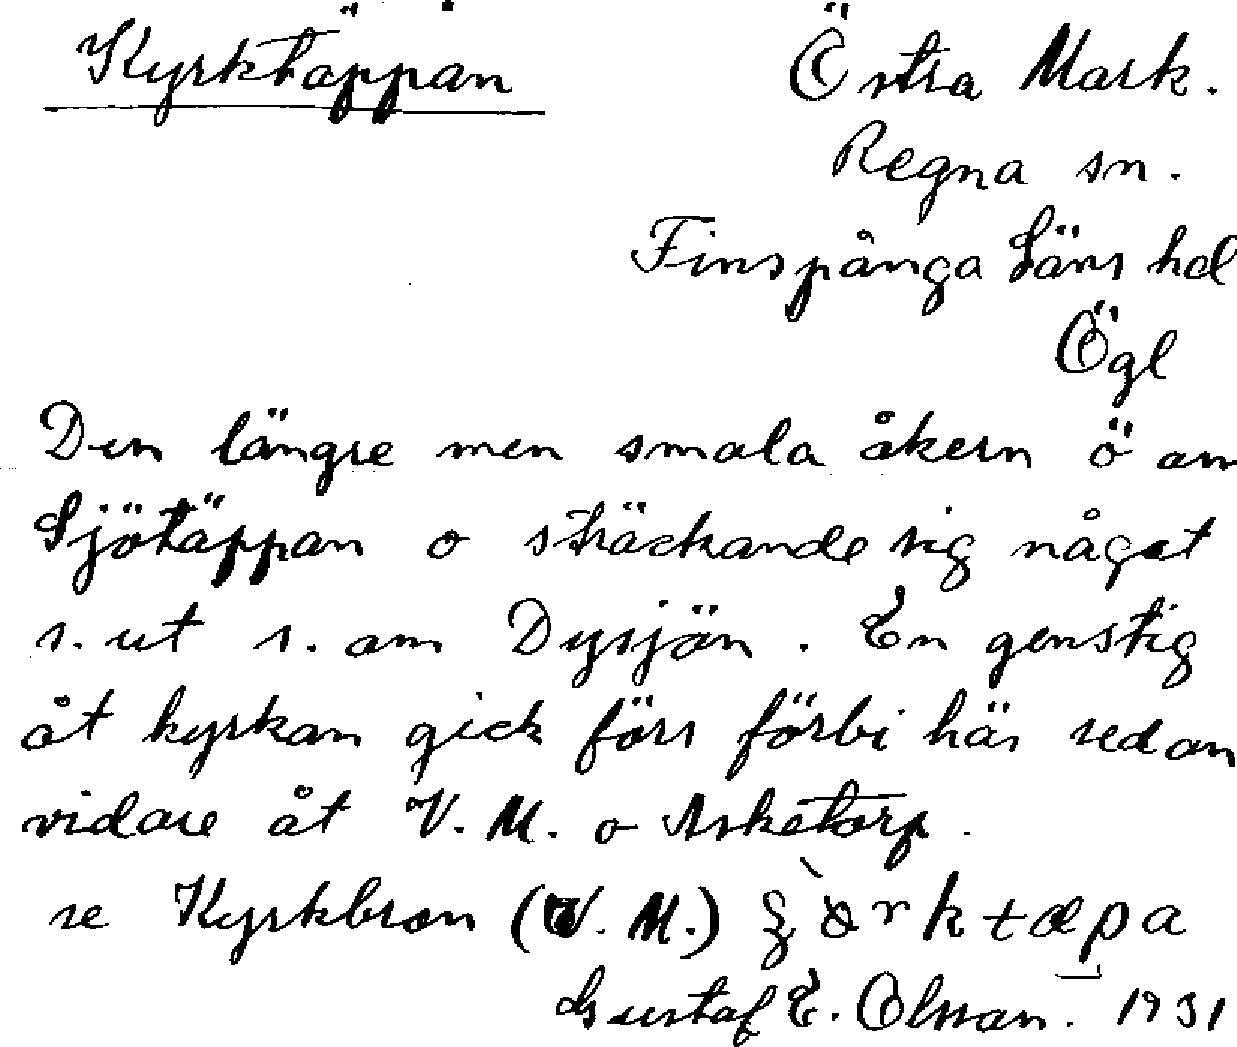 Kyrktäppan Östra Mark.
Regna sn.
Finspånga Läns hd
Ögl
Den längre men smala åkern ö om
Sjötäppan o sträckande sig något
s. ut s. om Dysjön. En genstig
åt kyrkan gick förr förbi här sedan
vidare åt V. M. o Asketorp.
se Kyrkbron (V. M.)
Gustaf E. Olsson. 1931